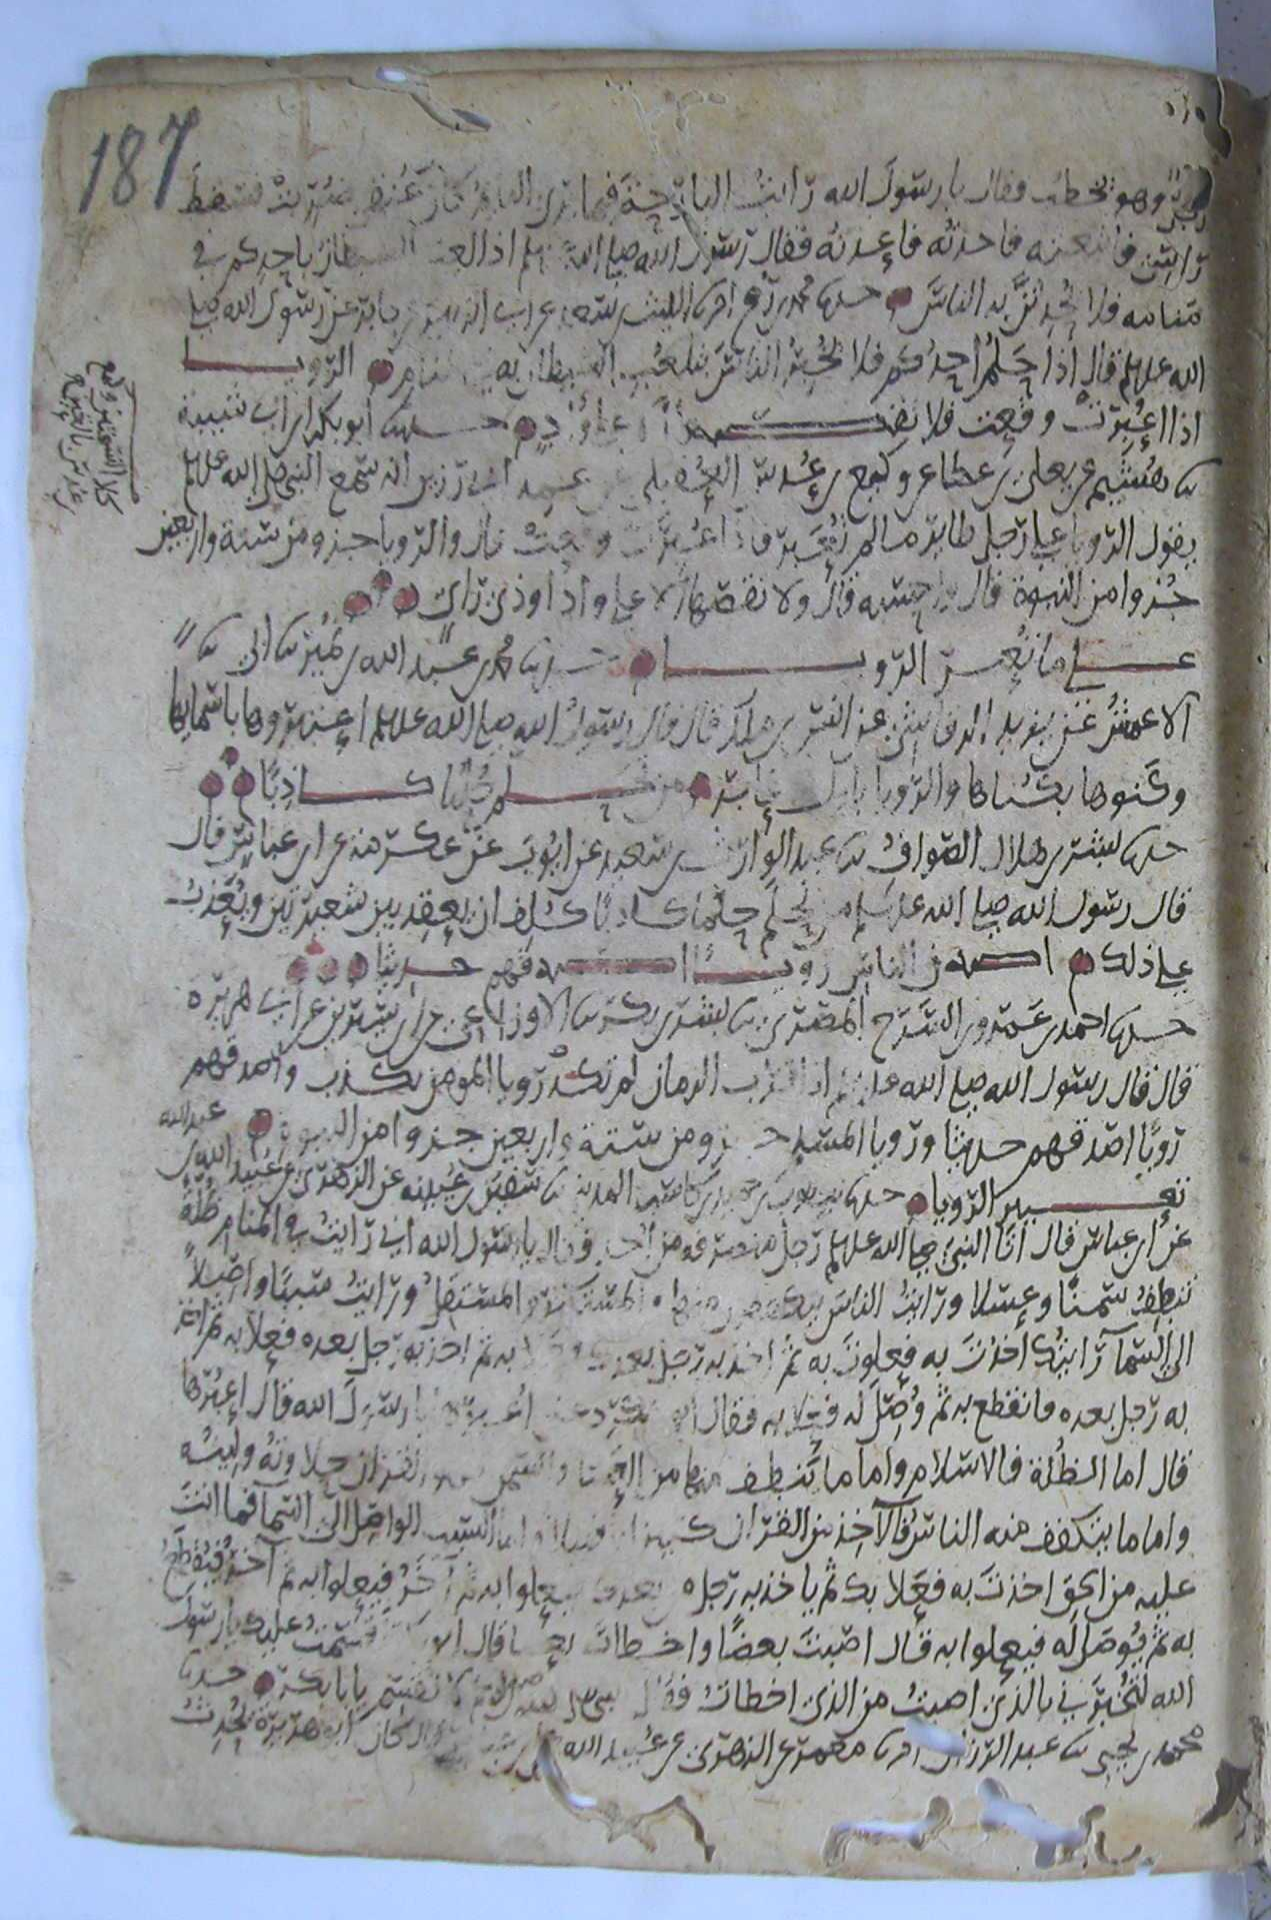 187
رجل وهو يخطب فقال يا رسول الله رايت البارحة فيما يرى النايم كان عنقي ضربت فسقط
راسي فاتبعته فاخذته فاعدته فقال رسول الله صلى الله علىىلم اذا لعب الشيطان باحدكم في
منامه فلا يحدثن به الناس حدىا محمد بن رمح انبا الليث بن سعد عن ابي الزبير عن جابر عن رسول الله صلى
الله علىىلم قال اذا حلم احدكم فلا يخبر الناس بتلعب الشيطان به في المنام الرويا
اذا اعبرت وقعت فلا يقصها الا على واد حدىا ابو بكر بن ابي شيبة
ىا هشيم عن يعلى بن عطا عن وكيع بن عدس العقيلي عن عمه ابي رزين انه سمع النبي صلى الله علىىلم
يقول الرويا على رجل طاير ما لم تعبر فاذا اعبرت وقعت قال والرويا جزو من ستة واربعين
جزوا من النبوة قال واحسبه قال ولا تقصها الا على واد او ذي راي
على ما تعبر الرويا حدىا محمد بن عبد الله بن نمير ىا ابي ىا
الاعمش عن يزيد الرقاشي عن انس بن ملك قال قال رسول الله صلى الله علىىلم اعتبروها باسمايها
وكنوها بكناها والرويا باول عابر من تحلم حلما كاذبا
حدىا بشر بن هلال الصواف ىا عبد الوارث بن سعيد عن ايوب عن عكرمة عن ابن عباس قال
قال رسول الله صلى الله علىىلم من تحلم حلما كاذبا كلف ان يعقد بين شعيرتين ويعذب
على ذلك اصدق الناس رويا اصدقهم حديثا
حدىا احمد بن عمرو بن السرح المصري ىا بشر بن بكر ىا الاوزاعي عن ابن سيرين عن ابي هريرة
قال قال رسول الله صلى الله علىىلم اذا اقترب الزمان لم تكد رويا المومن تكذب واصدقهم
رويا اصدقهم حديثا ورويا المسلم جزو من ستة واربعين جزوا من النبوة
تعبير الرويا حدىا يعقوب بن حميد بن كاسب المدني ىا سفين بن عيينه عن الزهري عن عبيد الله بن عبد الله
عن ابن عباس قال اتا النبي صلى الله علىىلم رجل منصرفه من احد فقال يا رسول الله اني رايت في المنام ظلة
تنطف سمنا وعسلا ورايت الناس يتكففون منها فالمستكثر والمستقل ورايت سببا واصلا
الى السمآ رايتك اخذت به فعلوت به ثم اخذ به رجل بعدك فعلا به ثم اخذ به رجل بعده فعلا به ثم اخذ
به رجل بعده فانقطع به ثم وصل له فعلا به فقال ابو بكر دعني اعبرها يا رسول الله قال اعبرها
قال اما الظلة فالاسلام واما ما تنطف منها من العسل والسمن فهو القران حلاوته ولينه
واما ما يتكفف منه الناس فالآخذ من القران كثيرا وقليلا واما السبب الواصل الى السمآ فما انت
عليه من الحق اخذت به فعلا بك ثم ياخذ به رجل من بعدك فيعلوا به ثم آخر فيعلوا به ثم آخر فيقطع
به ثم يوصل له فيعلوا به قال اصبت بعضا واخطات بعضا قال ابو بكر اقسمت عليك يا رسول
الله لتخبرني بالذي اصبت من الذي اخطات فقال النبي صلى الله علىىلم لا تقسم يابا بكر حدىا
محمد بن يحيى ىا عبد الرزاق انبا معمر عن الزهري عن عبيد الله عن ابن عباس قال كان ابو هريرة يحدث